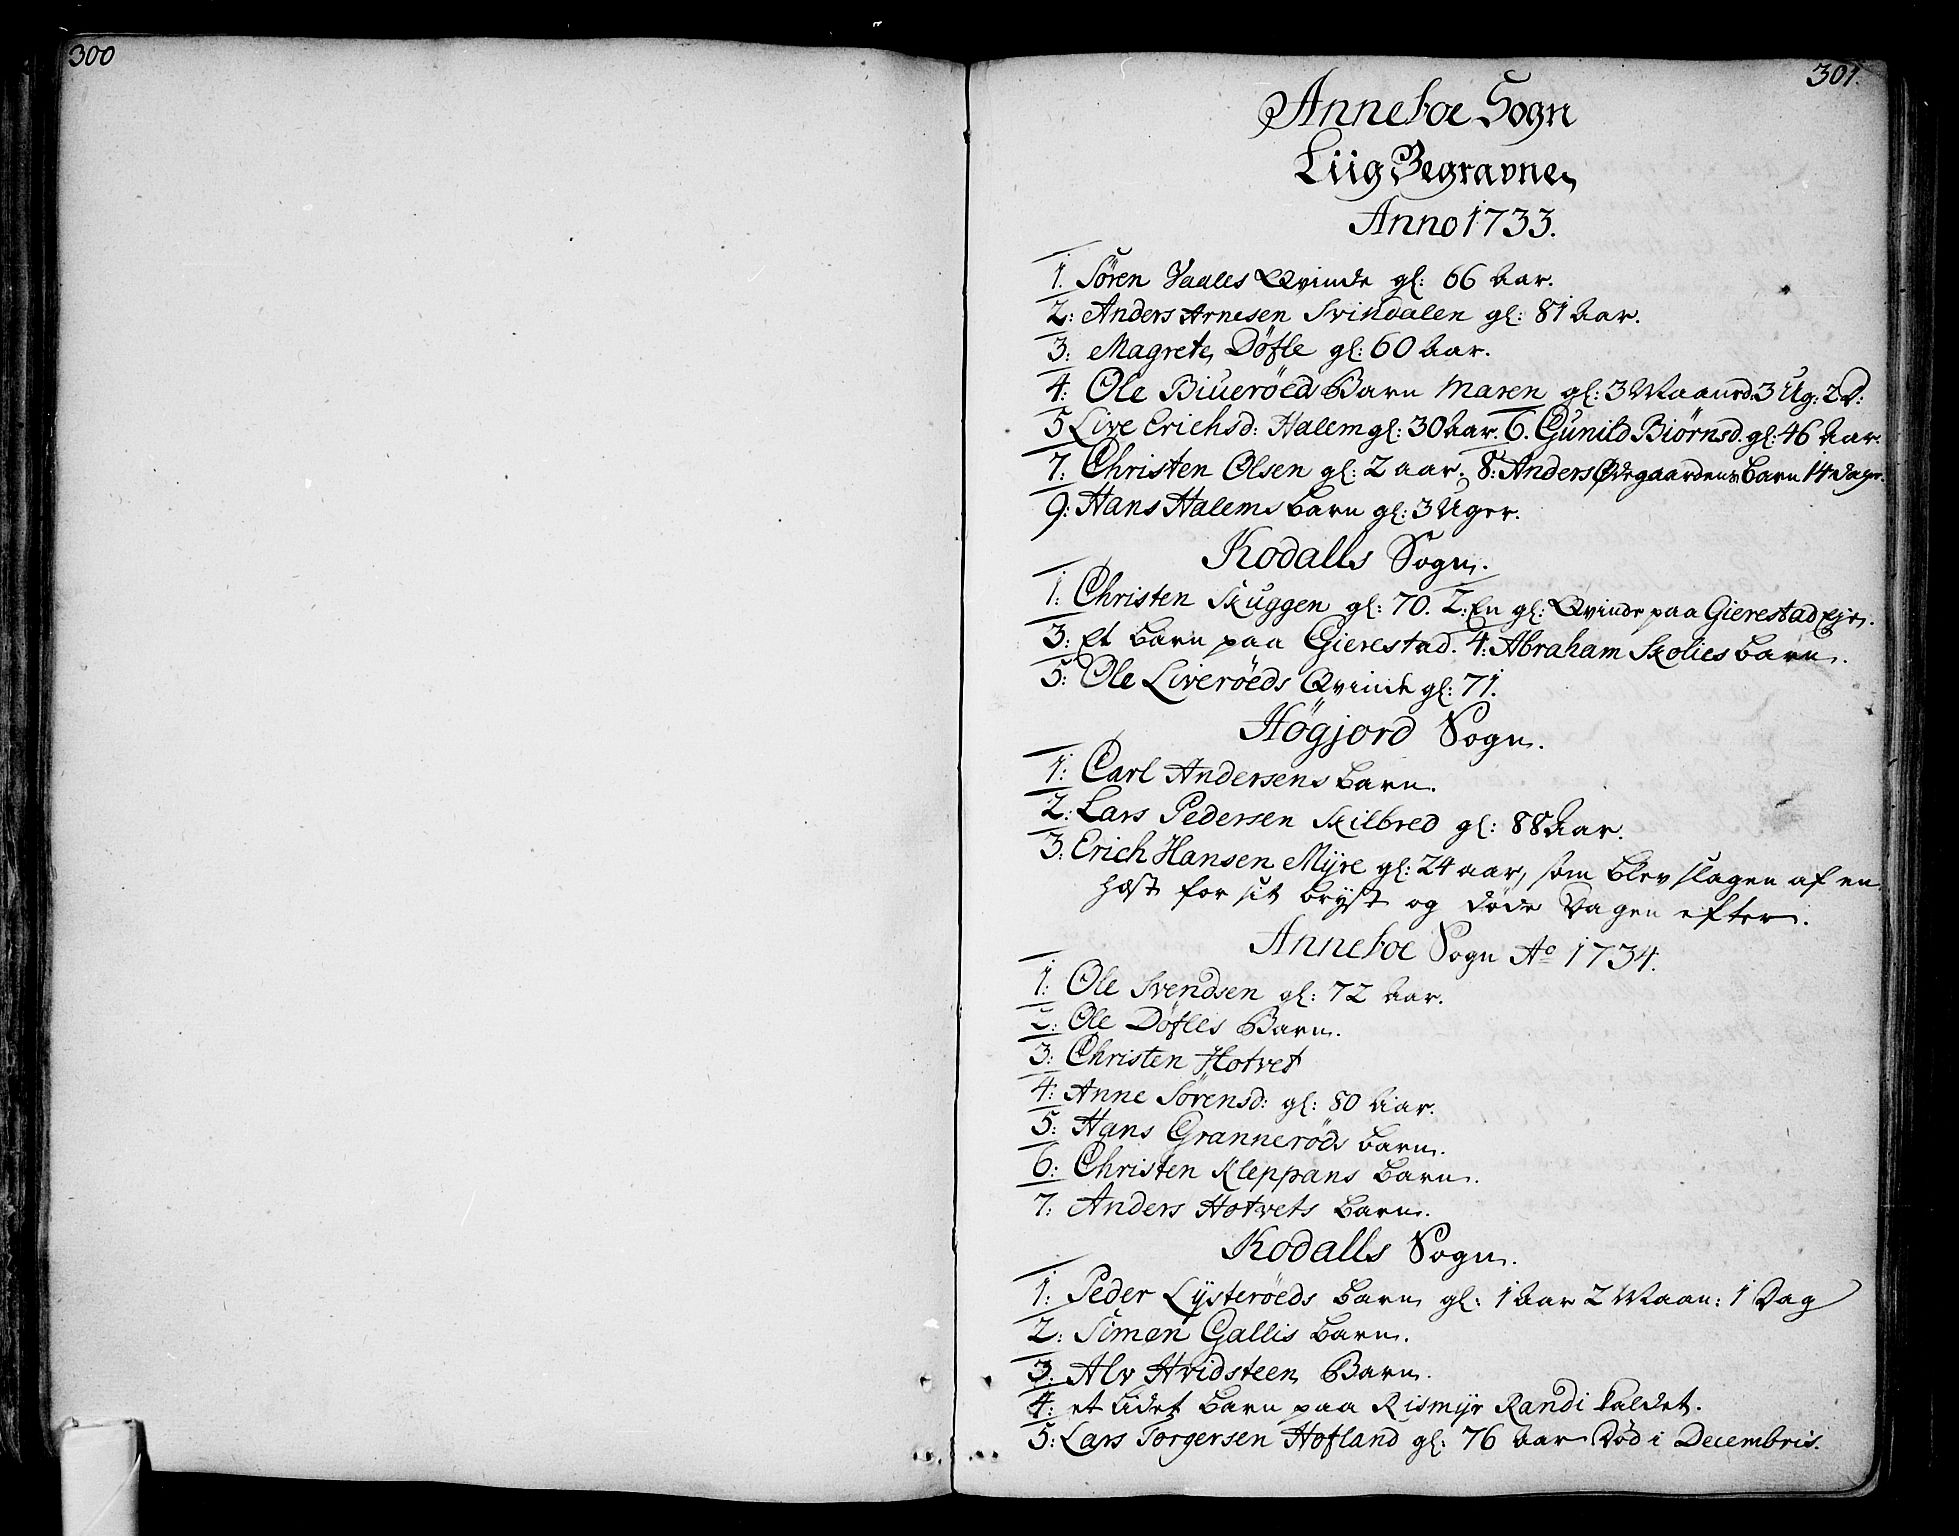 300
301.
Anneboe Sogn
Liig Begravne,
Anno 1733.
1. Sören Vaales Qvinde gl: 66 Aar.
2: Anders Arnesen Svindalen gl: 81 Aar.
3: Magrete Döfle gl: 60 Aar.
4: Ole Biueröeds Barn Maren gl: 3 Maaned 3 Ug: 2 D:
5 Live Erichsd: Halem gl: 30 Aar. 6. Gunild Biörnsd. gl: 46 Aar.
7: Christen Olsen gl: 2 aar. 8: Anders Ødegaardens Barn 14 dage.
9: Hans Halems Barn gl: 3 Uger.
Kodalls Sogn.
1: Christen Skuggen gl: 70. 2: En gl: Qvinde paa Gierestad Eje.
3: Et Barn paa Gierestad. 4: Abraham Skolies Barn.
5: Ole Liveröeds Qvinde gl: 71.
Högjord Sogn.
1: Carl Andersens Barn.
2: Lars Pedersen Skilbred gl: 88 Aar.
3: Erich Hansen Myre gl: 24 aar, som blev slagen af en
Hæst for sit bryst og döde Dagen efter.
Anneboe Sogn Ao 1734.
1: Ole Svendsen gl: 72 Aar.
2: Ole Döfles Barn.
3: Christen Hotvet
4: Anne Sörensd: gl: 80 Aar.
5: Hans Granneröds Barn.
6: Christen Kleppans Barn.
7: Anders Hotvets Barn.
Kodalls Sogn.
1: Peder Lysteröeds Barn gl: 1 Aar 2 Maan: 1 Dag
2: Simen Gallis Barn.
3. Alv Hvidsteen Barn.
4: et lidet Barn paa Rismyr Randi kaldet.
5: Lars Torgersen Hofland gl: 76 Aar Död i Decembris.